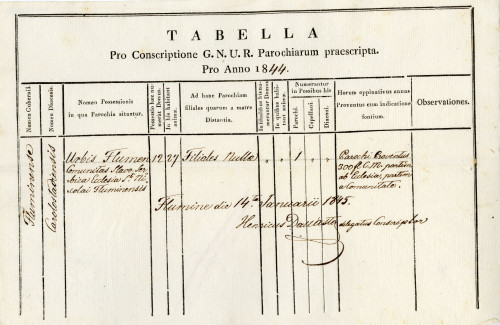 TABELLA
Pro Conscriptione G. N. U. R. Parochiarum praescripta.
Pro Anno 1844.
Nomen Gubernii.
Nomen Dioecesis.
Nomen Possessionis
in qua Parochia situatur.
Possessio haec numerat Domus.
In his habitant animae.
Ad hanc Parochiam
filiales quarum a matre
Distantia.
In filialibus numerantur Domus
In quibus habitant animae.
Numerantur
in Possibus his
Parochi.
Capellani.
Diaconi.
Horum oppinativus annus
Proventus cum indicatione
fontium.
Observationes.
Fluminense
Carolostadiensis
Urbis Flumen
Communitas Slavo Ser
bica Ecclesia St. Ni
colai Fluminensis
12
27
Filiales Nulla
1
Parochi Proventus
300 fl. C. M. partim
ab Eclesia, partim
a Comunitate.
Flumine die 14ta Januarii 1845.
Henricus
delegatus Conscriptor